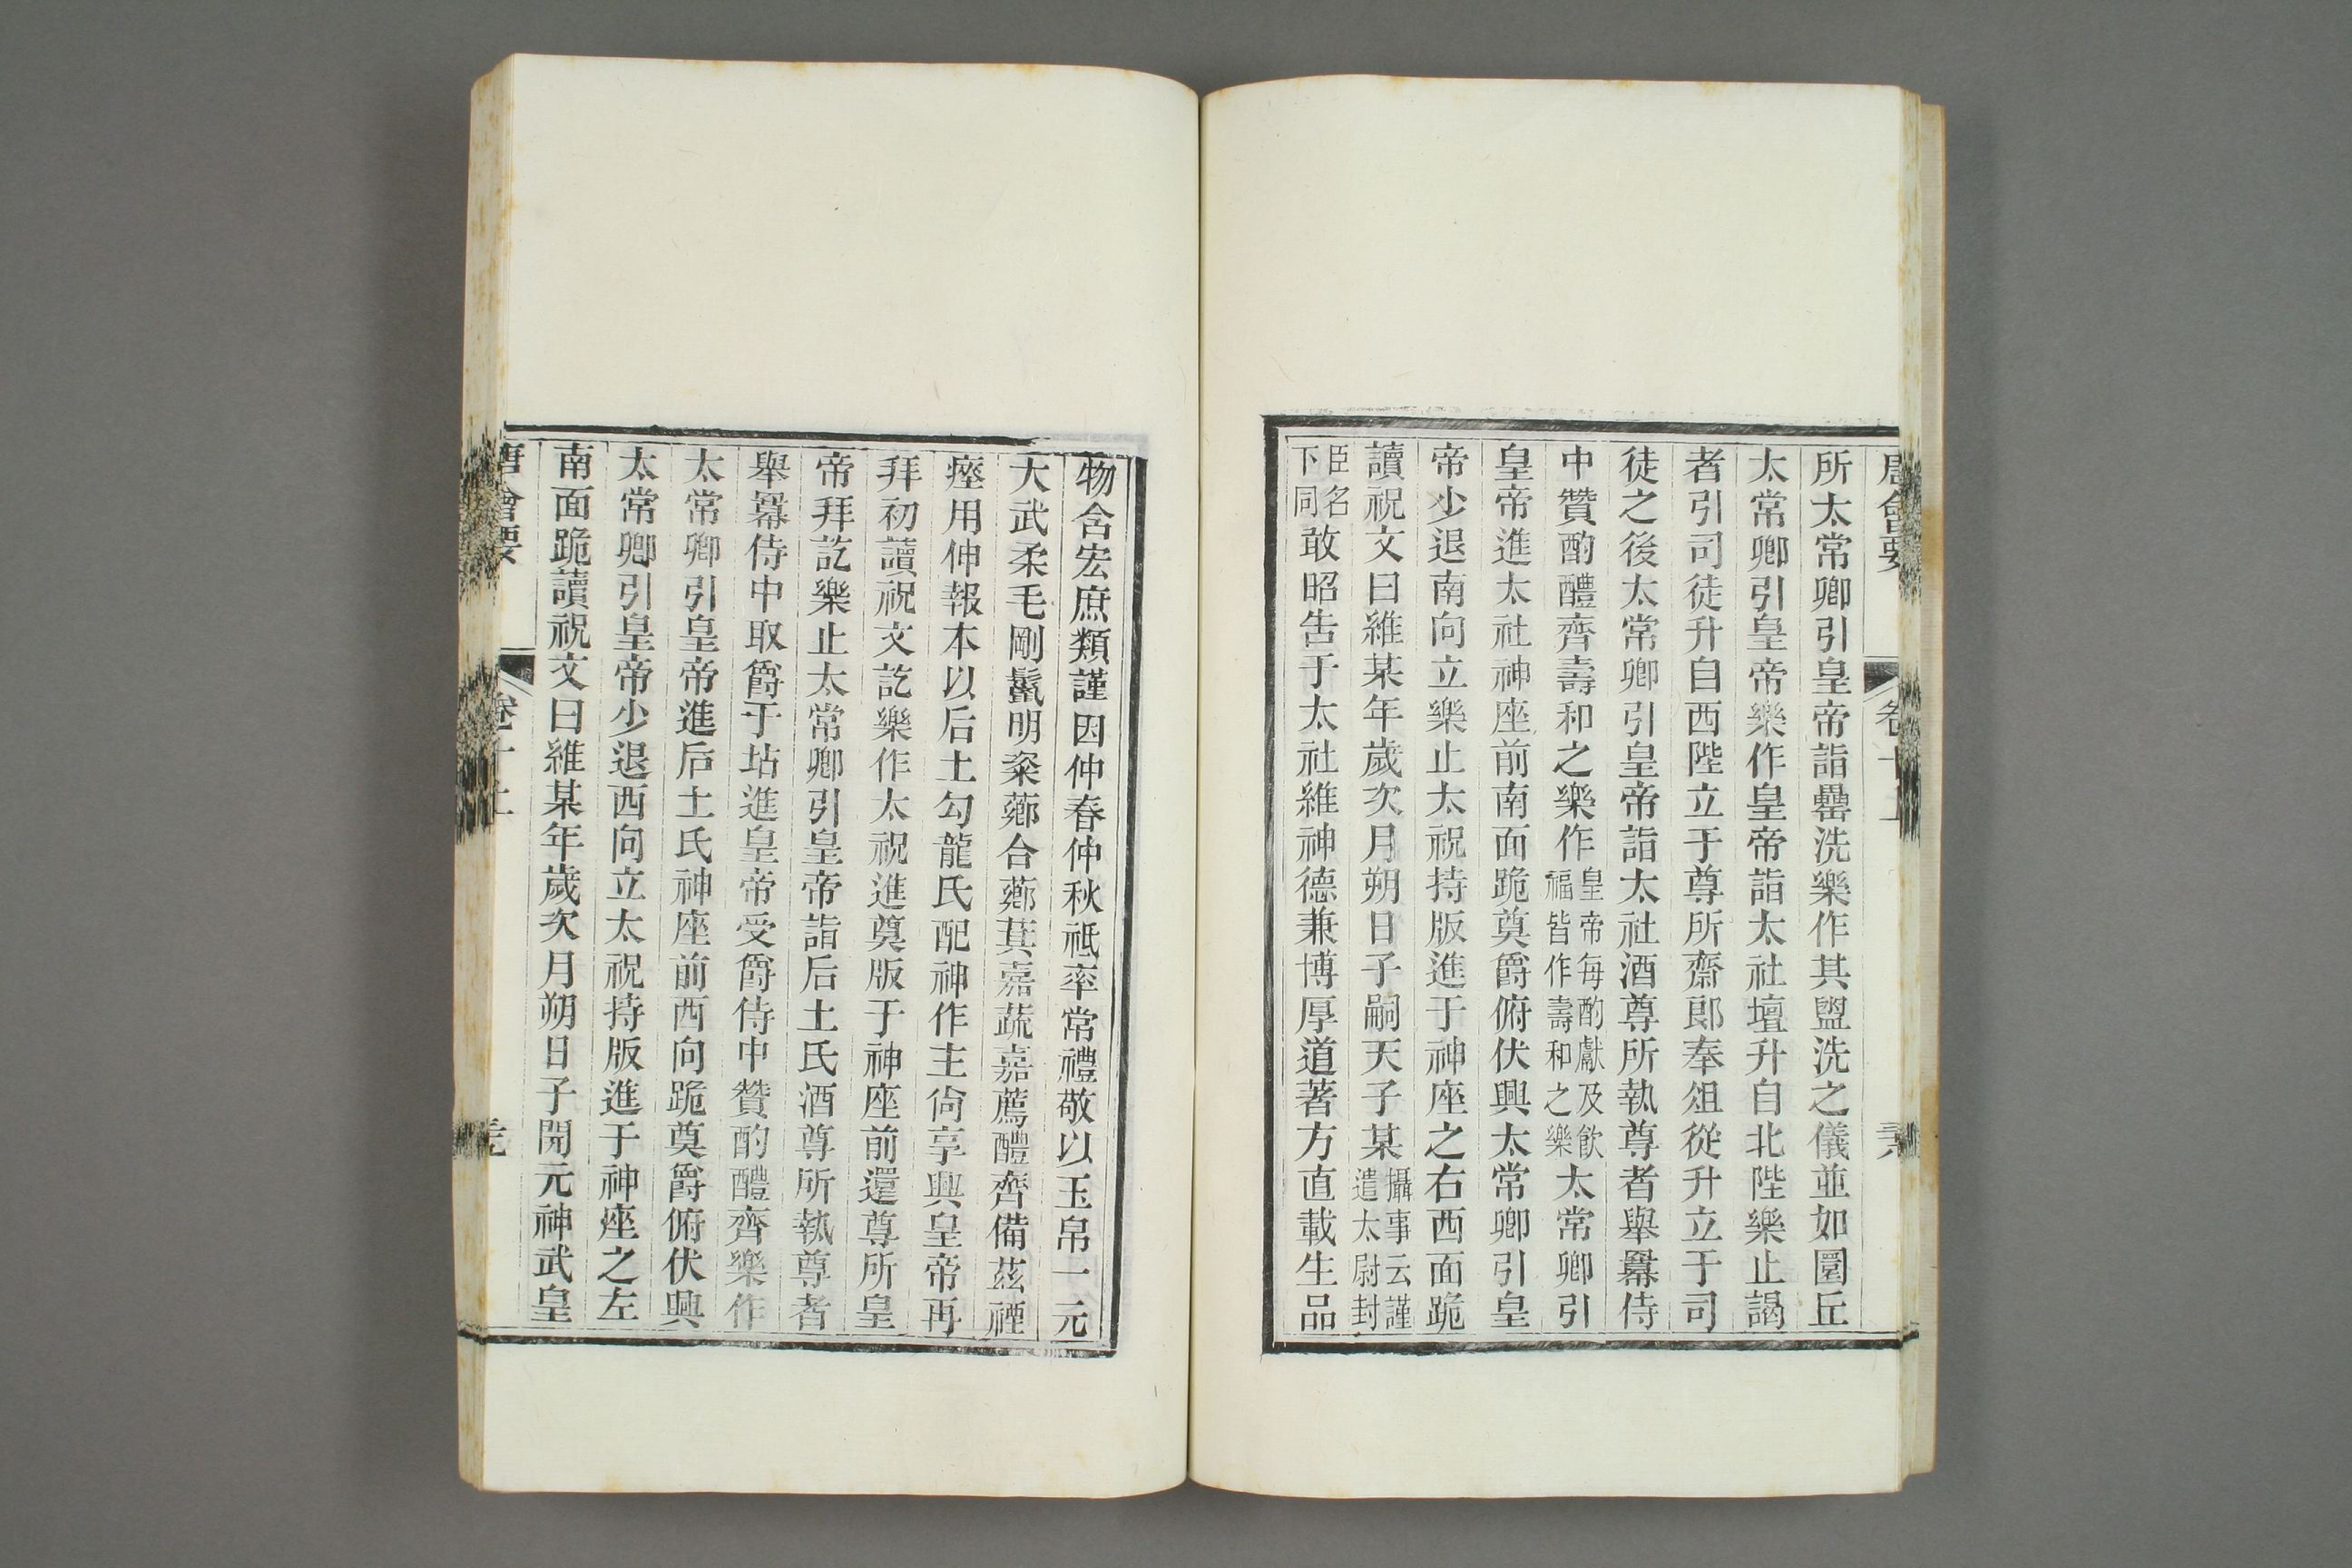 唐會要
卷十上
所太常卿引皇帝詣罍洗樂作其盥洗之儀並如圜丘
太常卿引皇帝樂作皇帝詣太社壇升自北陛樂止謁
者引司徒升自西陛立于尊所齋郎奉俎從升立于司
徒之後太常卿引皇帝詣太社酒尊所執尊者舉羃侍
中贊酌醴齊壽和之樂作皇帝每酌獻及飲福皆作壽和之樂太常卿引
皇帝進太社神座前南面跪奠爵俯伏興太常卿引皇
帝少退南向立樂止太祝持版進于神座之右西面跪
讀祝文曰維某年歲次月朔日子嗣天子某攝事云謹遣太尉封
臣名下同敢昭告于太社維神德兼博厚道著方直載生品
物含宏庶類謹因仲春仲秋祗率常禮敬以玉帛一元
大武柔毛剛鬣明粢薌合薌萁嘉蔬嘉薦醴齊備茲禋
瘞用伸報本以后土勾龍氏配神作主尙享興皇帝再
拜初讀祝文訖樂作太祝進奠版于神座前還尊所皇
帝拜訖樂止太常卿引皇帝詣后土氏酒尊所執尊者
舉羃侍中取爵于坫進皇帝受爵侍中贊酌醴齊樂作
太常卿引皇帝進后土氏神座前西向跪奠爵俯伏興
太常卿引皇帝少退西向立太祝持版進于神座之左
南面跪讀祝文曰維某年歲次月朔日子開元神武皇
唐會要
卷十上